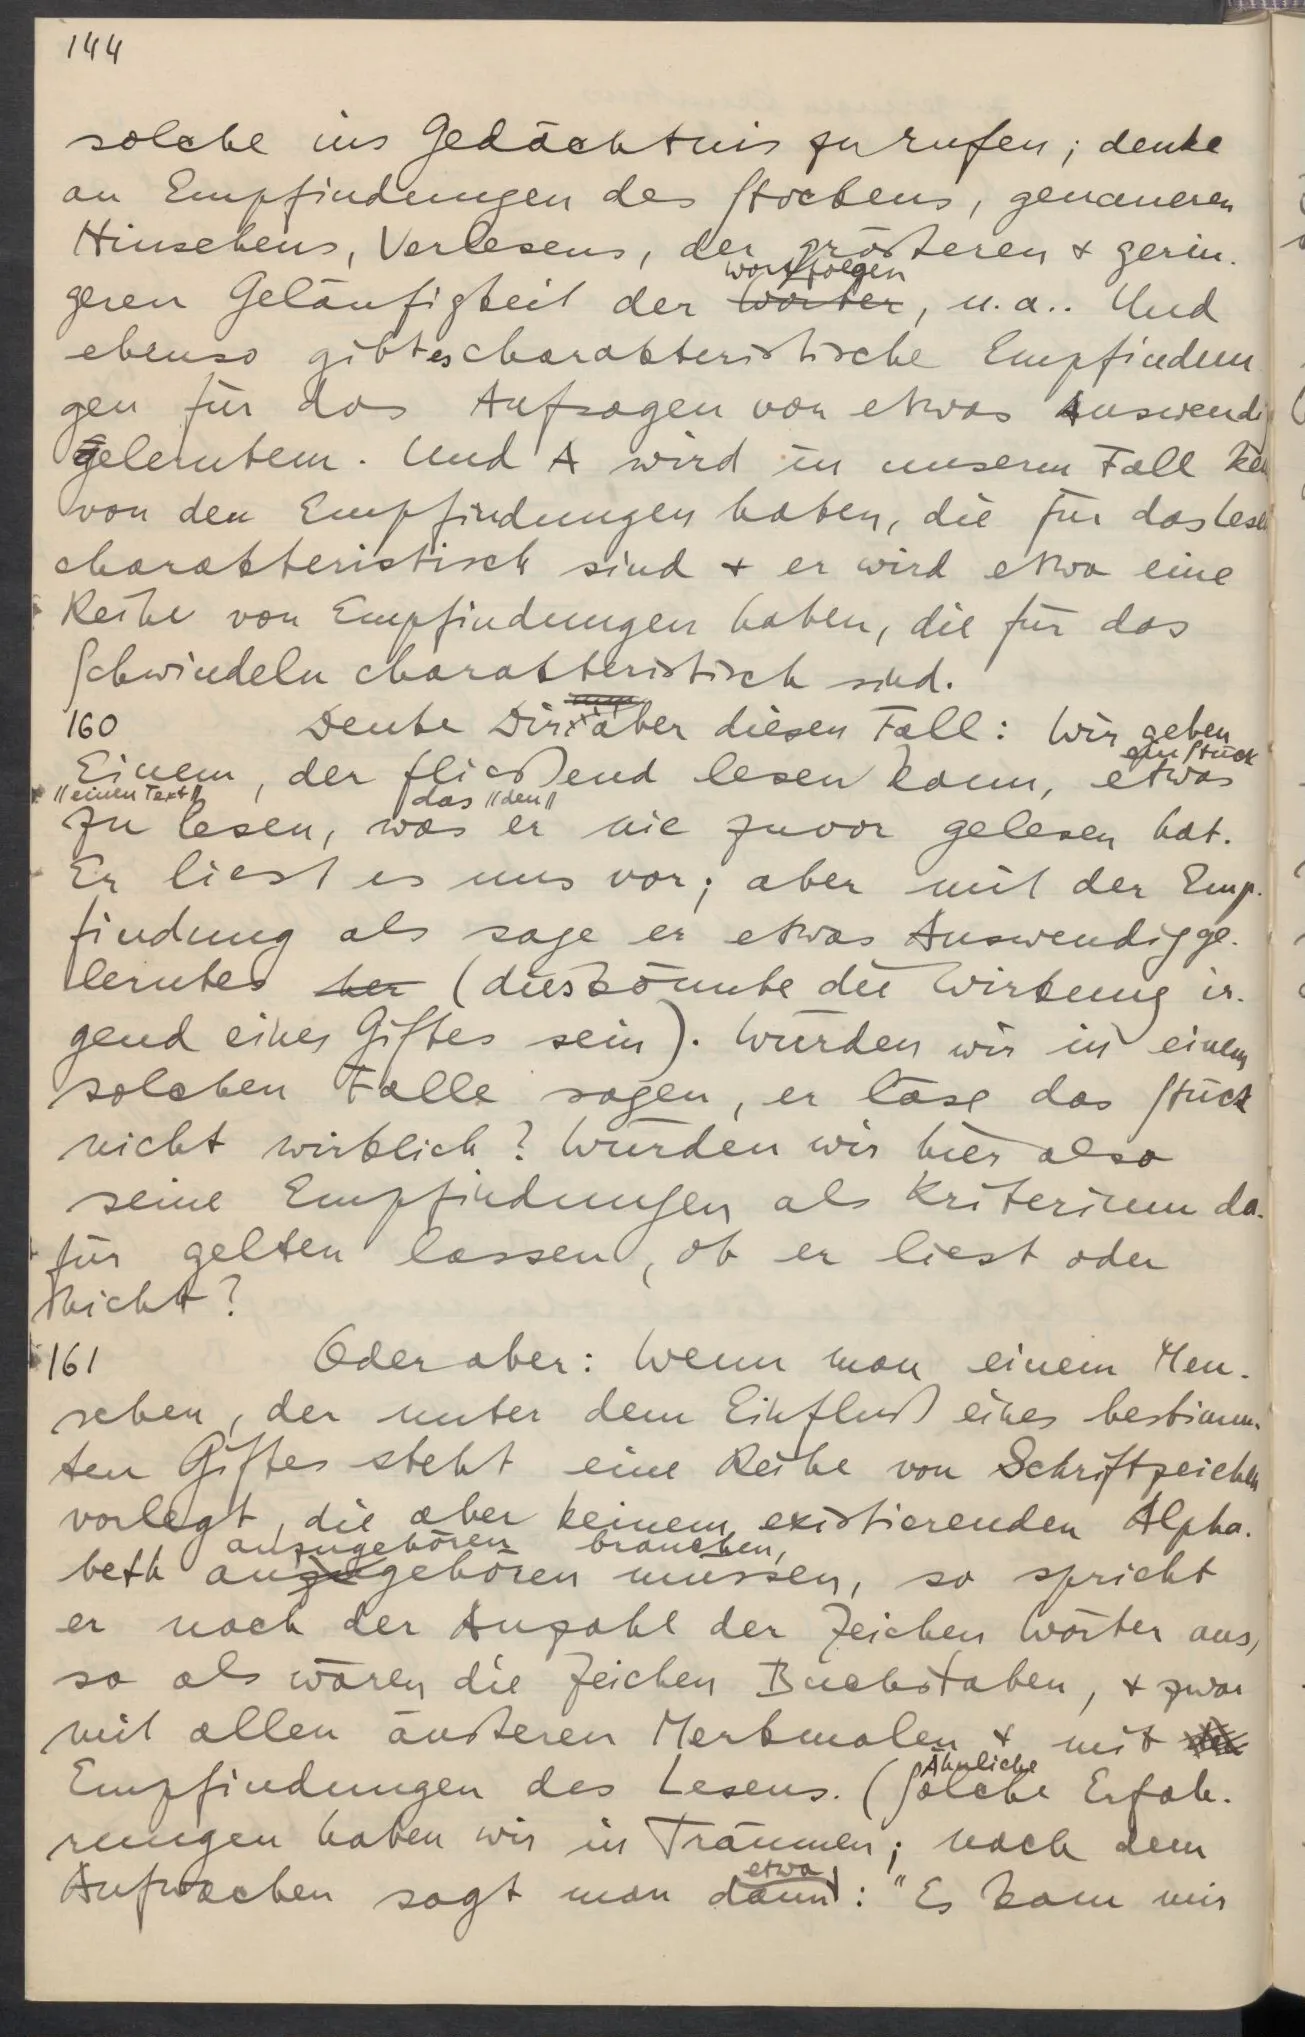 144
solche ins Gedächtnis zu rufen; denke
an Empfindungen des Stockens, genaueren
Hinsehens, Verlesens, der größeren & gerin-
Wortfolgen
geren Geläufigkeit der Wörter, u.a.. Und
ebenso gibt es charakteristische Empfindun
gen für das Aufsagen von etwas Auswendi
gelerntem. Und A wird in unserm Fall kei
von den Empfindungen haben, die für das Lese
charakteristisch sind & er wird etwa eine
Reihe von Empfindungen haben, die für das
Schwindeln charakteristisch sind.
160 Denke Dir aber diesen Fall: Wir geben
ein Stück
Einem, der fließend lesen kann, etwas
"einen Text" das "den"
zu lesen, was er nie zuvor gelesen hat.
Er liest es uns vor; aber mit der Emp-
findung als sage er etwas Auswendigge-
lerntes her (dies könnte die Wirkung ir-
gend eines Giftes sein). Würden wir in einem
solchen Falle sagen, er läse das Stück
nicht wirklich? Würden wir hier also
seine Empfindungen als Kriterium da-
für gelten lassen, ob er liest oder
nicht?
161 Oder aber: Wenn man einem Men-
schen, der unter dem Einfluß eines bestimm-
ten Giftes steht eine Reihe von Schriftzeichen
vorlegt, die aber keinem existierenden Alpha-
anzugehören brauchen,
beth anzugehören müssen, so spricht
er nach der Anzahl der Zeichen Wörter aus,
so als wären die Zeichen Buchstaben, & zwar
mit allen äußeren Merkmalen & mit den
Ähnliche
Empfindungen des Lesens. (Solche Erfah-
rungen haben wir in Träumen; nach dem
etwa
Aufwachen sagt man dann: "Es kam mir